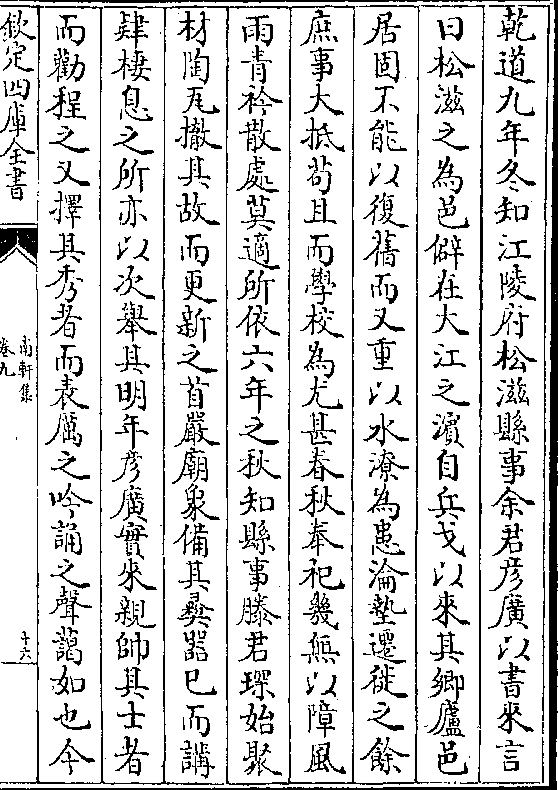 乾道九年冬知江陵府松滋縣事余君彦廣以書來言
曰松滋之為邑僻在大江之濵自兵戈以來其鄉廬邑
居固不能以復舊而又重以水潦為患淪墊遷徙之餘
庶事大抵苟且而學校為尤甚春秋奉祀幾無以障風
雨青衿散處莫適所依六年之秋知縣事滕君琛始聚
材陶瓦撤其故而更新之首嚴廟象備其彛器已而講
肄棲息之所亦以次舉其明年彦廣實來親帥其士者
而勸程之又擇其秀者而表厲之吟誦之聲藹如也今
欽定四庫全書
南軒集
卷九
十六